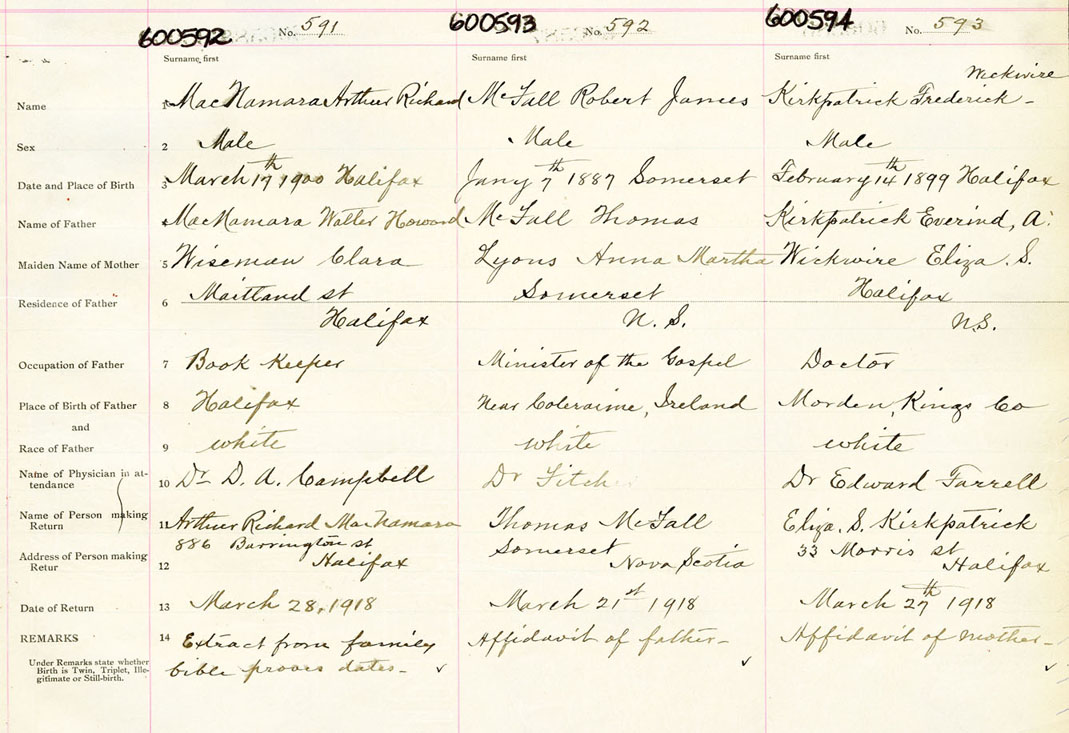 600592 No. 591 600593 No. 592 600594 No. 593
Surname first Surname first Surname first
Wickwire
Name 1 MacNamara Arthur Richard McFall Robert James Kirkpatrick Frederick -
Sex 2 Male Male Male
Date and Place of Birth 3 March 17th 1900 Halifax Jany 7th 1887 Somerset February 14th 1899 Halifax
Name of Father MacNamara Walter Howard McFall Thomas Kirkpatrick Everind, A.
Maiden Name of Mother 5 Wiseman Clara Lyons Anna Martha Wickwire Eliza. S.
Residence of Father 6 Maitland st Somerset Halifax
Halifax N. S. N.S.
Occupation of Father 7 Book Keeper Minister of the Gospel Doctor
Place of Birth of Father 8 Halifax Near Coleraime, Ireland Morden, Kings Co
and
Race of Father 9 white white white
Name of Physician in at-
tendance 10 Dr D. A. Campbell Dr Fitch Dr Edward Farrell
Name of Person making
Return 11 Arthur Richard MacNamara Thomas McFall Eliza. S. Kirkpatrick
Address of Person making 886 Barrington st Somerset 33 Morris st
Retur 12 Halifax Nova Scotia Halifax
Date of Return 13 March 28, 1918 March 21st 1918 March 27th 1918
REMARKS 14 Extract from family Affidavit of father - Affidavit of mother -
Under Remarks state whether
Birth is Twin, Triplet, Ille-
gitimate or Still-birth. bible proves dates -